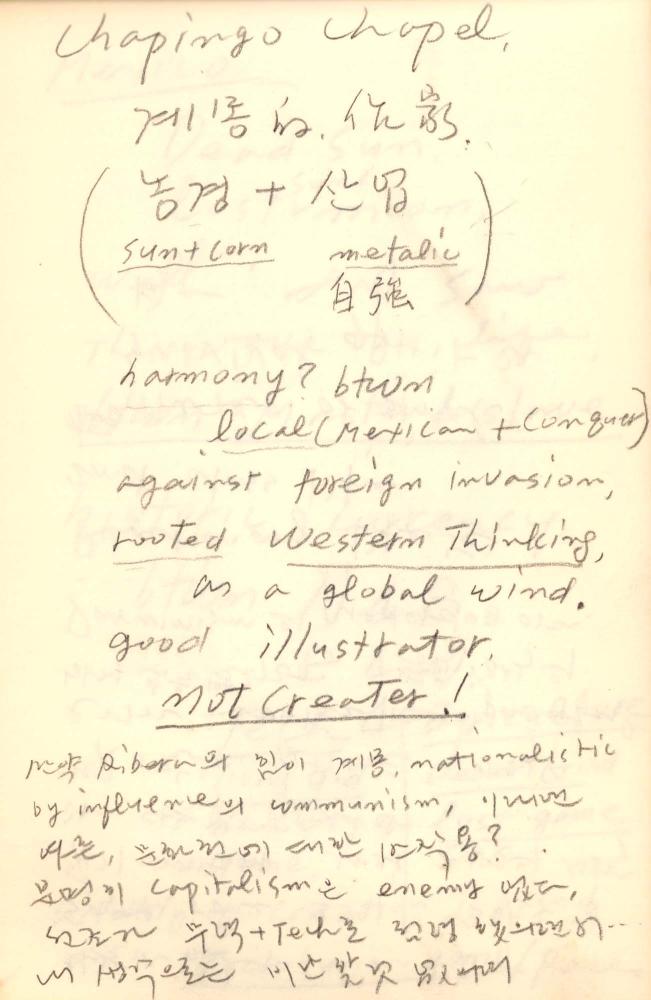 Chapingo Chapel,
계몽的. 作家.
(농경 + 산업
sun+corn metalic)
自強
harmony? btwn
local (Mexican + Conquer)
against foreign invasion,
rooted Western Thinking,
as a global wind.
good illustrator.
not Creater!
만약 Ribera의 힘이 계몽, nationalistic
by influence의 communism, 이라면
문화전에 대한 반작용?
분명히 capitalism은 enemy 였다,
무력+Tech로 점령 했으면서..
내 생각으로는